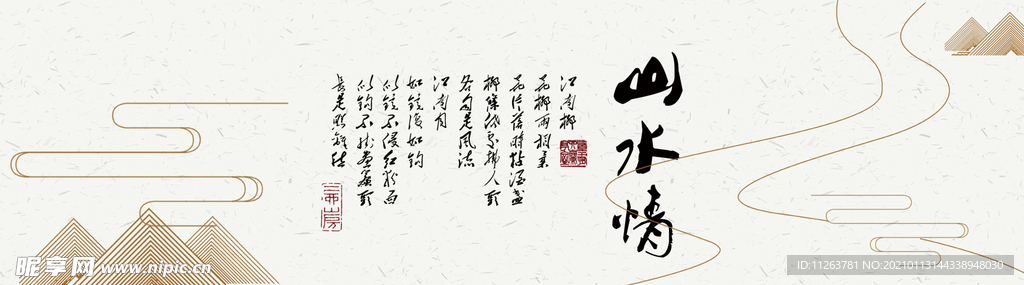 山水情
江南柳
花柳兩相柔
花片落時黏酒盞
柳條低處拂人頭
各自是風流
江南月
如鏡復如鉤
似鏡不侵紅粉面
似鉤不掛畫簾頭
長是照離愁
昵享网 www.nipic.cn
ID:11263781 NO:20210113144338948030